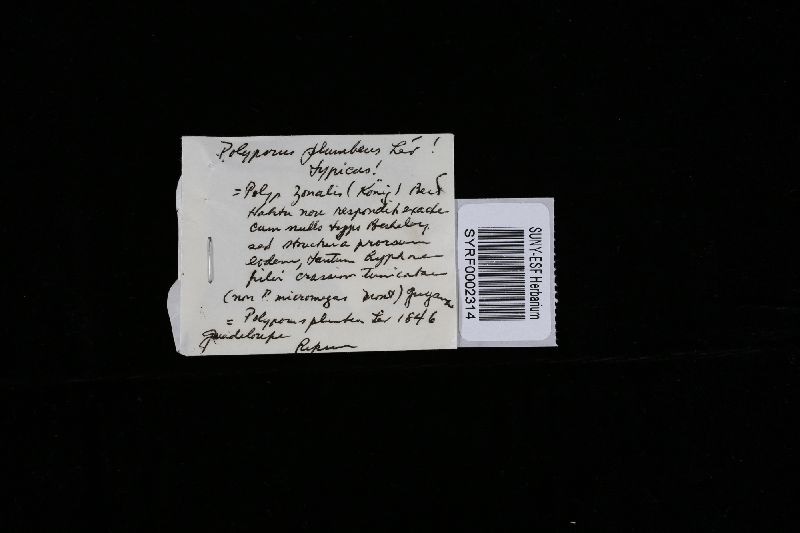 Polyporus plumbeus Lév!
typicus!
= Polyp. Zonalis (König) Berk
Habitu non respondit exacte
cum nullo typo Berkeley,
sed structura prorsum
eodem, tantum hyphae
crassiom tunicatae
(non P. micromegas Mont) Guyana
= Polyporus plumbeus Lév 1846
Guadeloupe
SUNY-ESF Herbarium
SYRF0002314